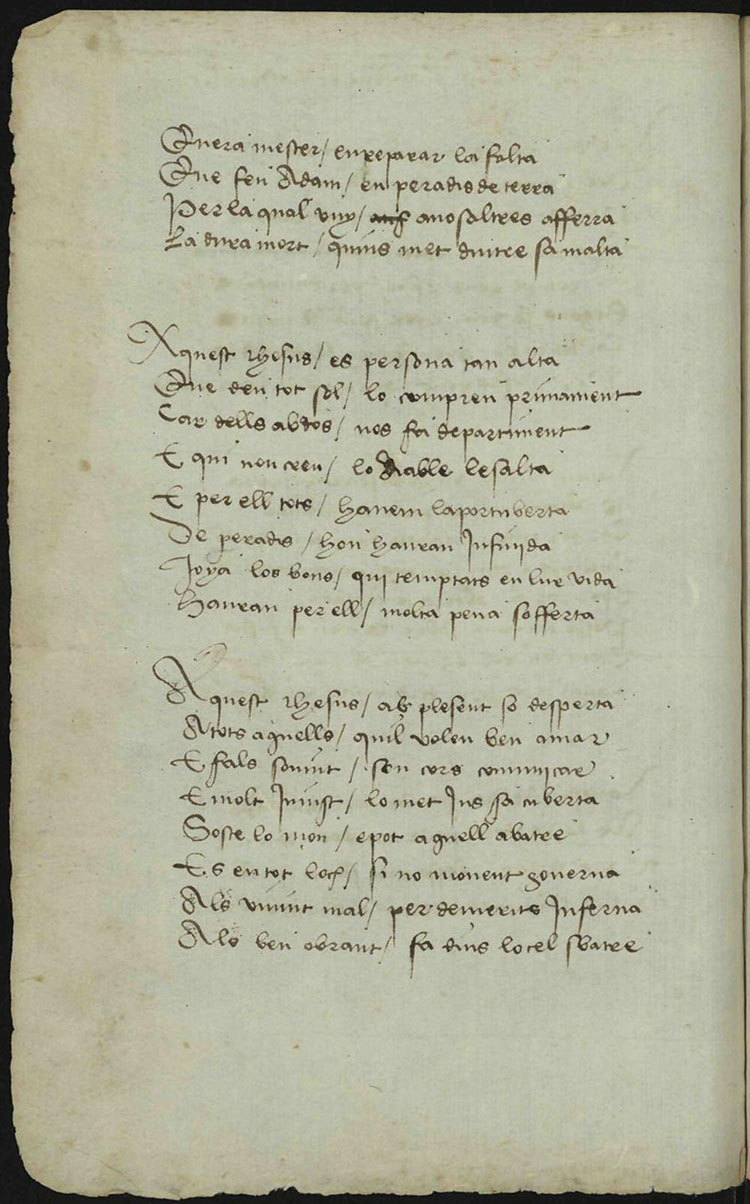 Quera mester / en reparar la falta
Que feu Adam / en peradis de terra
Per la qual vuy / a nosaltres afferra
La dura mort / quins met dintre sa malta
Aquest rhesus / es persona tan alta
Que deu tot sol / lo compren primament
Car dells abdos / nos fa departiment
E qui nou creu / lo diable lesalta
E per ell tots / hauem la porta uberta
De peradis / hon hauran Infinida
Joya los bons / qui temptats en lur vida
Hauran per ell / molta pena sofferta
Aquest rhesus / ab plesent so desperta
A tots aquells / quil volen ben amar
E fals souint / son cors comunicar
E molt Iniust / lo met Ins sa cuberta
Soste lo mon / e pot aquell abatre
Es en tot loch / si no mouent gouerna
Als viuint mal / per demerits Inferna
Als ben obrant / fa dins lo cel sbatre